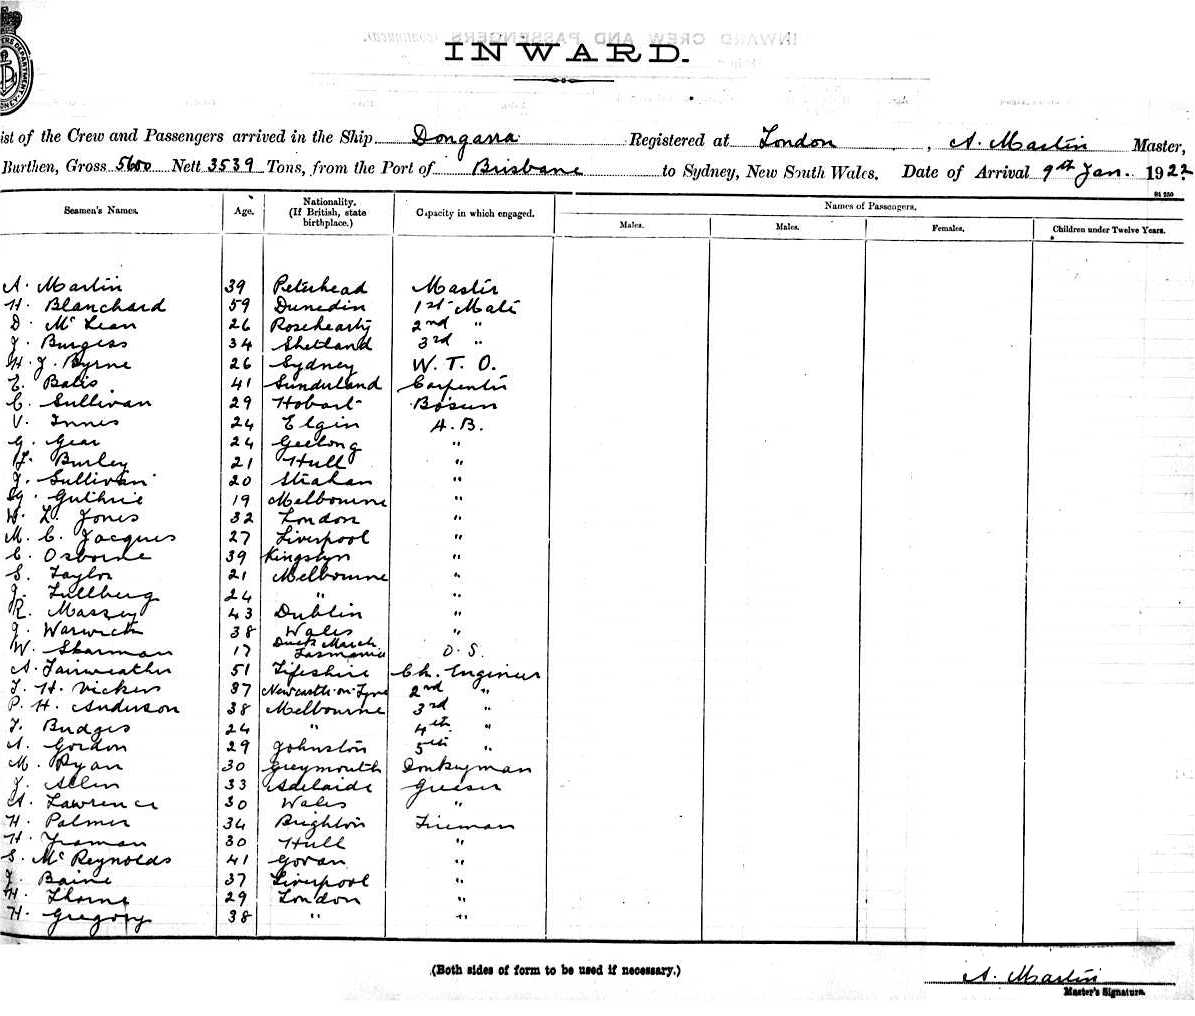 INWARD.
ist of the Crew and Passengers arrived in the Ship Dongarra Registered at London , A. Martin Master,
Burthen, Gross 5600 Nett 3539 Tons, from the Port of Brisbane to Sydney, New South Wales. Date of Arrival 9th Jan. 1922
Seamen's Names. Age. Nationality. (If British, state birthplace.) Capacity in which engaged. Names of Passengers.
Males. Males. Females. Children under Twelve Years.
A. Martin 39 Peterhead Master
H. Blanchard 59 Dunedin 1st Mate
D. McLean 26 Rosehearty 2nd "
J. Burgess 34 Shetland 3rd "
H. J. Byrne 26 Sydney W. T. O.
E. Batis 41 Sunderland Carpenter
C. Sullivan 29 Hobart Bosun
V. Innes 24 Elgin A.B.
G. Gear 24 Geelong "
F. Burley 21 Hull "
J. Sullivan 20 Strahan "
Guthrie 19 Melbourne "
W. L. Jones 32 London "
M. C. Jacques 27 Liverpool "
C. Osborne 39 Kingstyn "
S. Taylor 21 Melbourne "
J. Tullberg 24 " "
R. Massey 43 Dublin "
J. Warwick 38 Wales "
W. Sharman 17 Duck March Tasmania O.S.
A. Fairweather 51 Fifeshire Ch. Engineer
T. H. Vickers 37 Newcastle-on-Tyne 2nd "
P. H. Anderson 38 Melbourne 3rd "
F. Budges 24 " 4th "
A. Gordon 29 Johnston 5th "
M. Ryan 30 Greymouth Donkeyman
J. Allen 33 Adelaide Greaser
A. Lawrence 30 Wales "
H. Palmer 34 Brighton Fireman
H. Yeaman 30 Hull "
S. McReynolds 41 Govan "
J. Baine 37 Liverpool "
H. Thorne 29 London "
H. Gregory 38 " "
(Both sides of form to be used if necessary.)
A. Martin
Master's Signature.